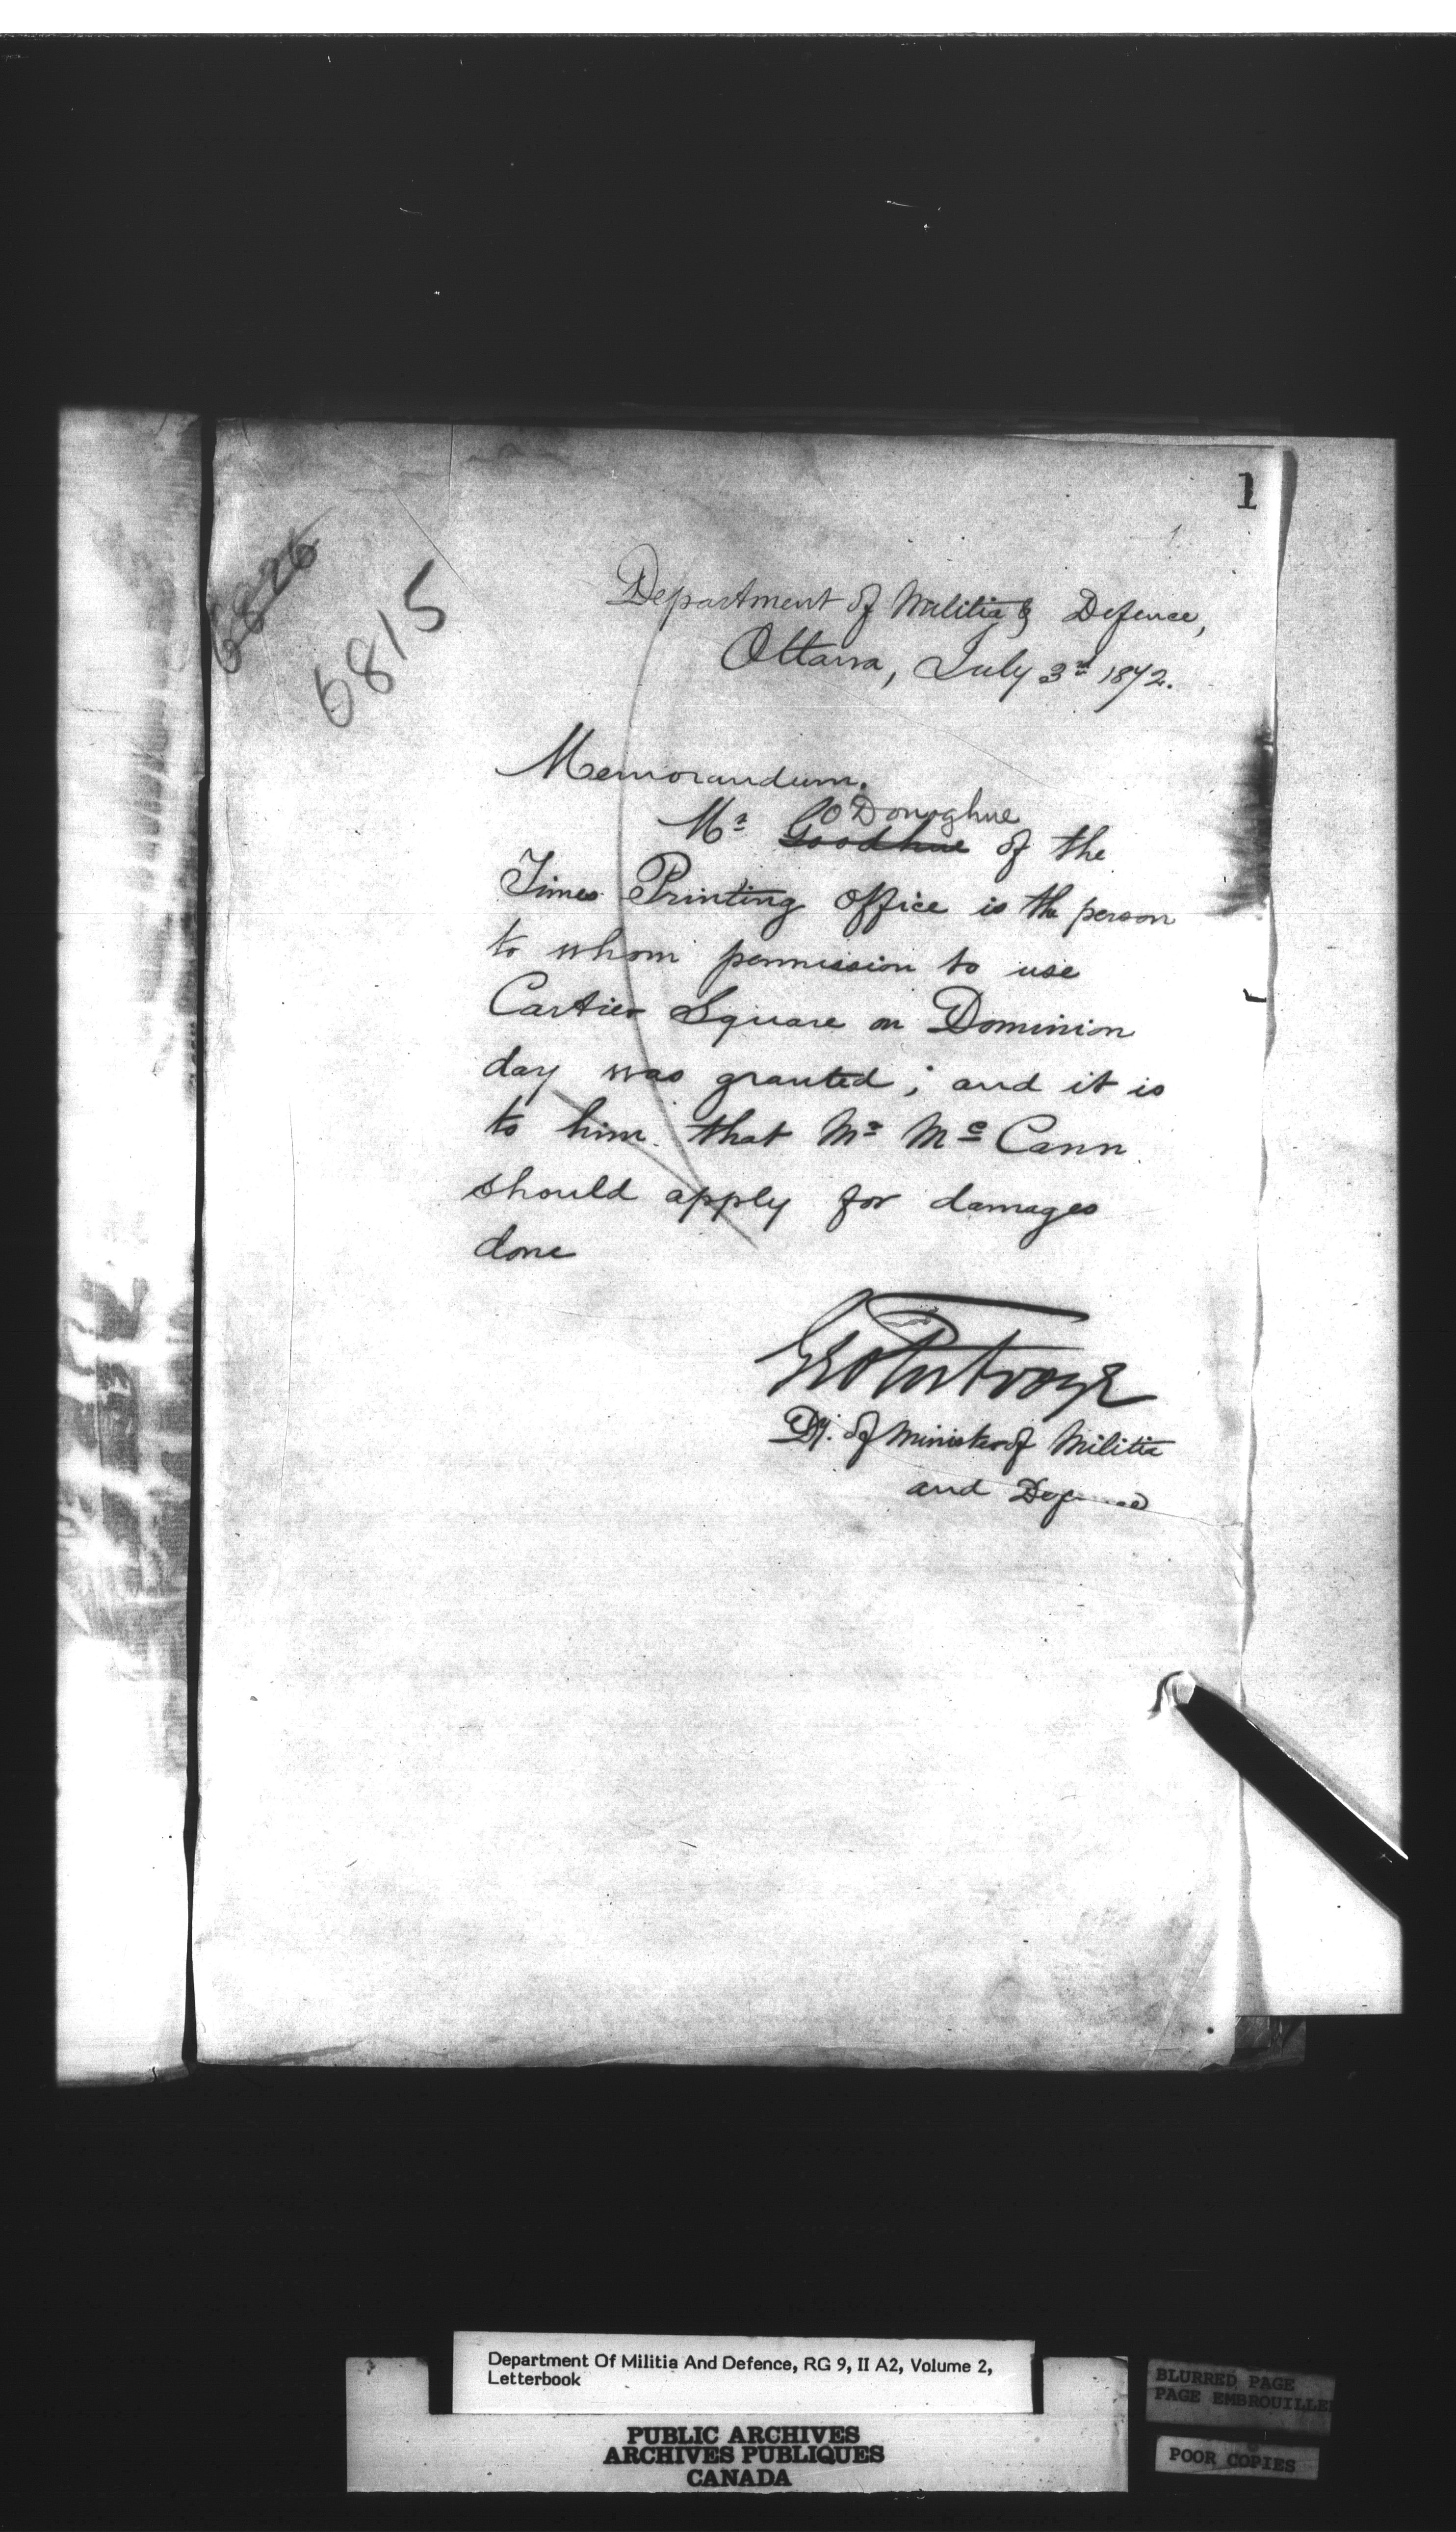 1
6826
6815
Department of Militia & Defence,
Ottawa, July 3rd 1872.
Memorandum.
O'Donoghue
Mr Goodhue of the
Times Printing Office is the person
to whom permission to use
Cartier Square on Dominion
day was granted; and it is
to him that Mr McCann
should apply for damages
done
Geo Futvoye
Dy. of Minister of Militia
and Defence
Department Of Militia And Defence, RG 9, II A2, Volume 2,
Letterbook
PUBLIC ARCHIVES
ARCHIVES PUBLIQUES
CANADA
BLURRED PAGE
PAGE EMBROUILLE
POOR COPIES